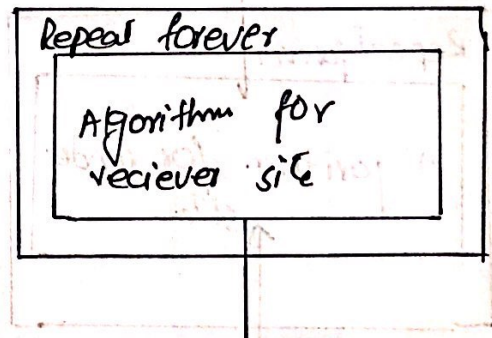 Repeat forever
Algorithm for
reciever site